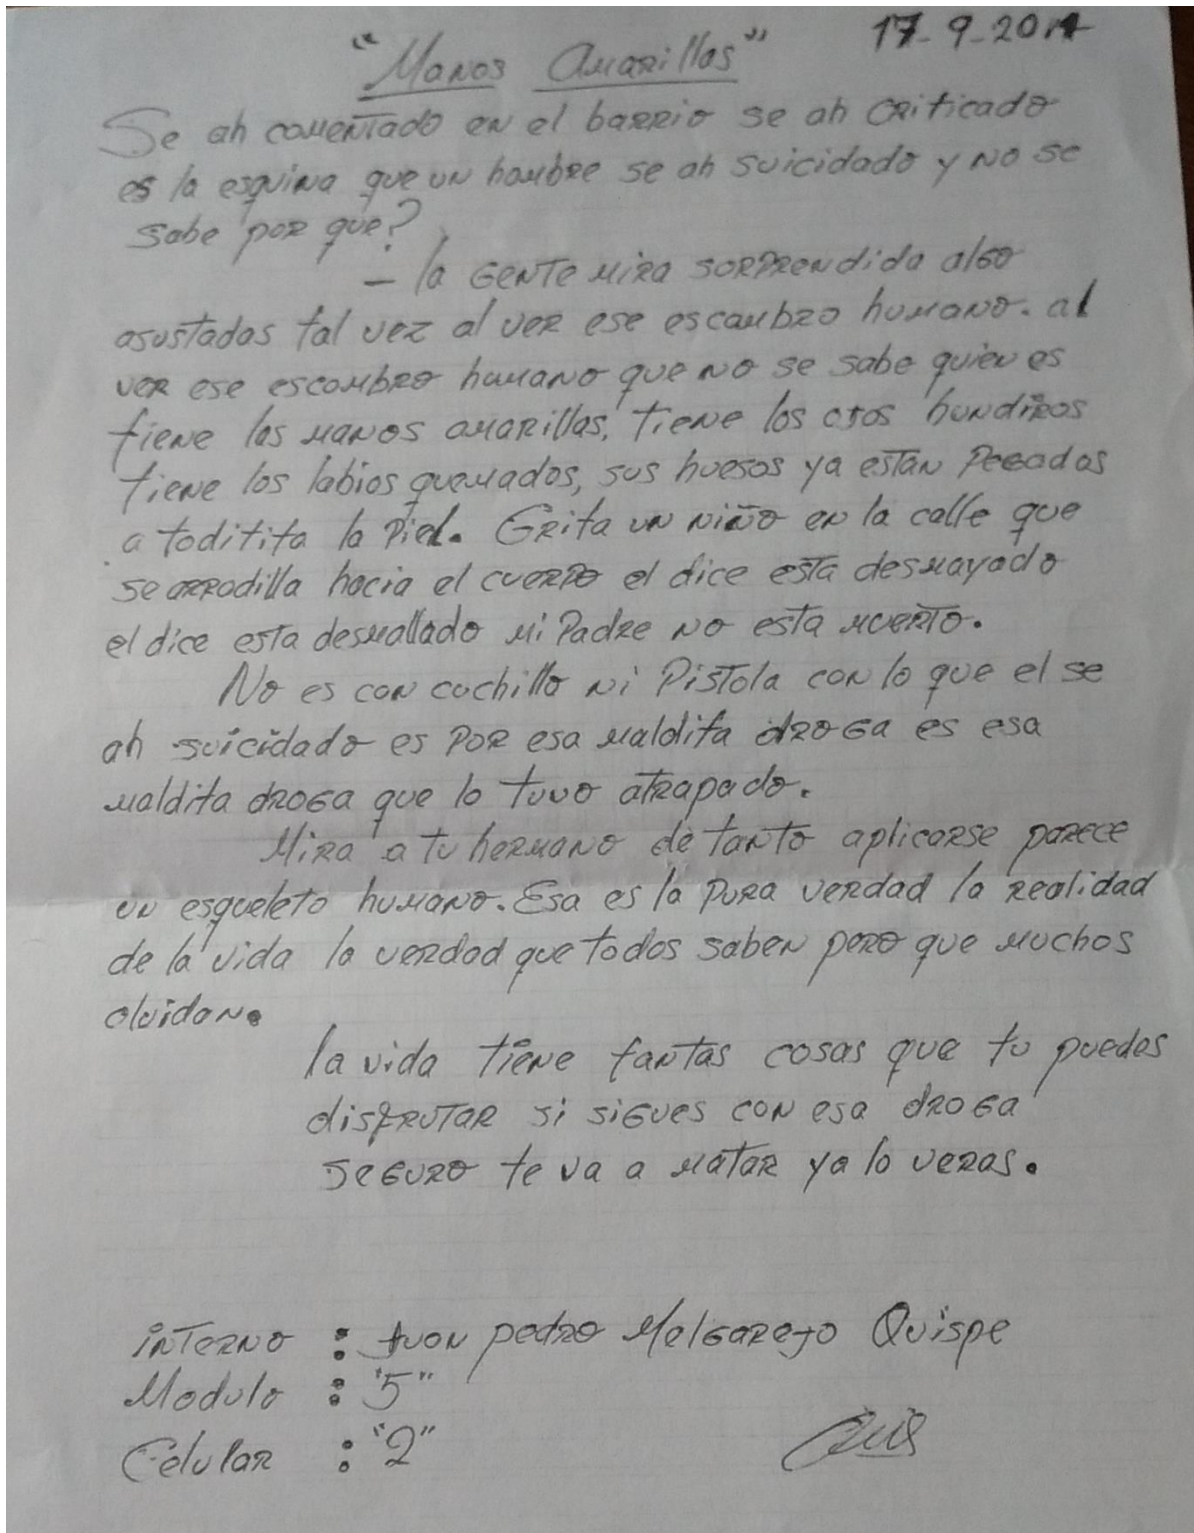 "Manos Amarillas" 17-9-2014
Se ah comentado en el barrio se ah criticado
es la esquina que un hombre se ah suicidado y no se
sabe por que?
- la gente mira sorprendida algo
asustadas tal vez al ver ese escombro humano. al
ver ese escombro humano que no se sabe quien es
tiene las manos amarillas, tiene los ojos hundiros
tiene los labios quemados, sus huesos ya estan pegados
a toditita la piel. Grita un niño en la calle que
se arrodilla hacia el cuerpo el dice esta desmayado
el dice esta desmallado mi Padre no esta muerto.
No es con cuchillo ni Pistola con lo que el se
ah suicidado es por esa maldita droga es esa
maldita droga que lo tuvo atrapado.
Mira a tu hermano de tanto aplicarse parece
un esqueleto humano. Esa es la pura verdad la realidad
de la vida la verdad que todos saben pero que muchos
olvidan.
la vida tiene tantas cosas que tu puedes
disfrutar si sigues con esa droga
seguro te va a matar ya lo veras.
interno : Juan pedro Melgarejo Quispe
Modulo : "5"
Celular : "2"